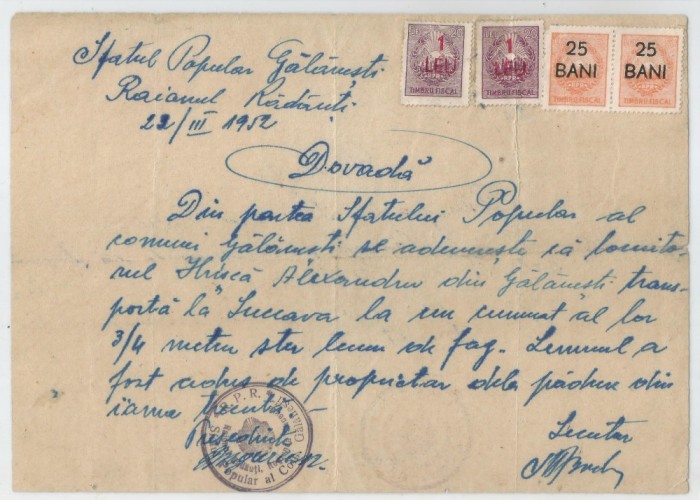 Sfatul Popular Gălănești
Raionul Rădăuți
22/III 1952
1
LEU
TIMBRU FISCAL
1
LEU
TIMBRU FISCAL
25
BANI
TIMBRU FISCAL
25
BANI
TIMBRU FISCAL
Dovadă
Din partea Sfatului Popular al
comunei Gălănești se adeverește că locuito-
rul Hrișcă Alexandru din Gălănești trans-
portă la Suceava la un cumnat al lor
3/4 metru ster lemn de fag. Lemnul a
fost adus de proprietar dela pădure din
iarna trecută
Președinte
Secretar
R.P.R.
Popular al Com.